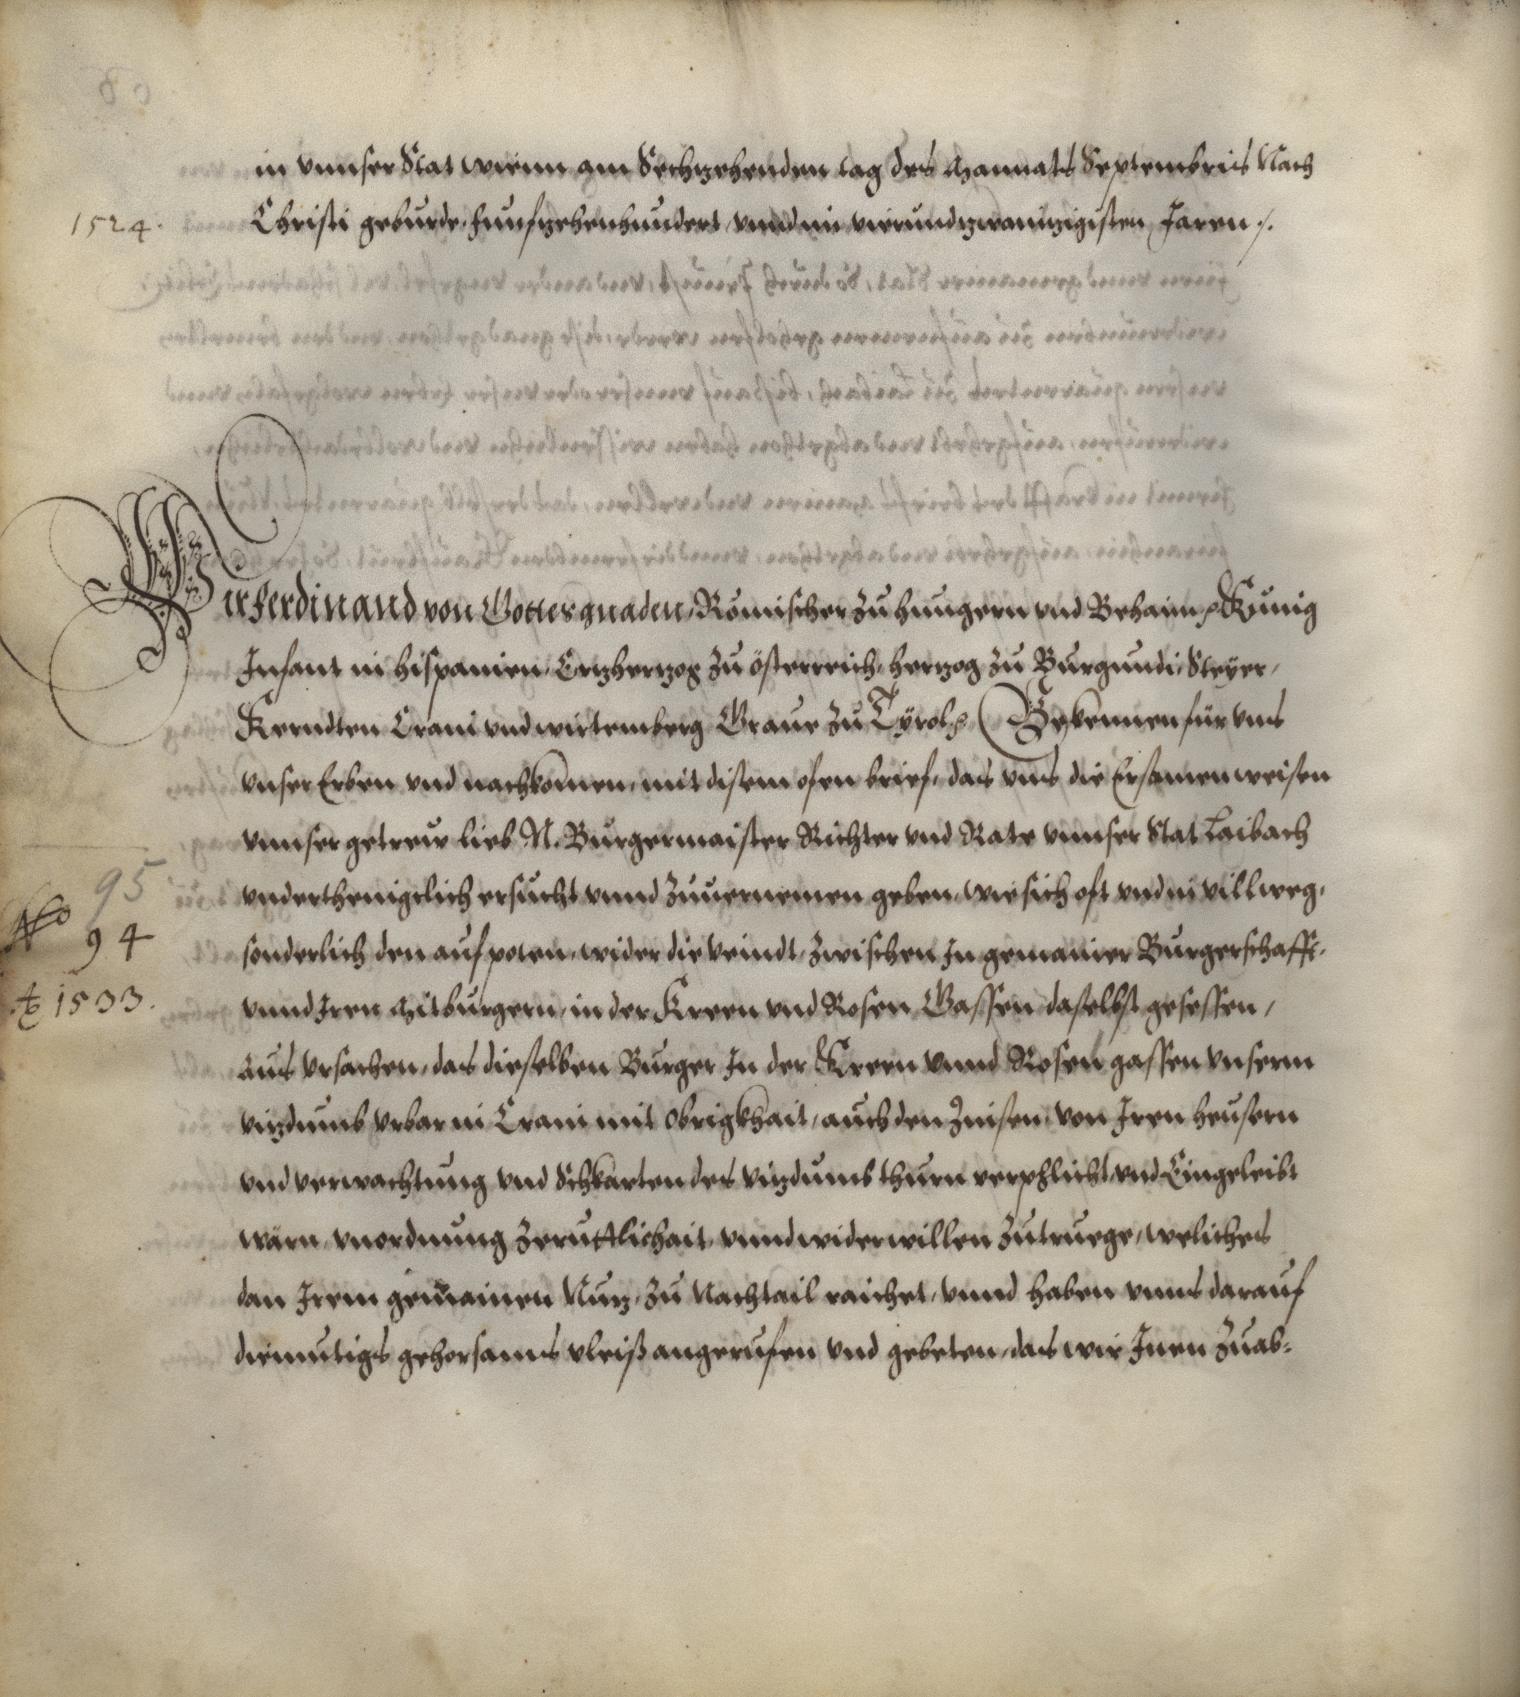 in vnnser Stat wienn am Sechzehenden tag des Monnats Septembris Nach
1524.
Christi geburde, funfzehenhundert, vnnd im vierundzwainzigisten Jaren /.
Wir ferdinand von Gottes gnaden, Römischer zu hungern vnd Behaim ꝛc Künig
Infant in hispanien, Erzherzog zu österreich, herzog zu Burgundi, Steÿer,
Kerndten Crain vnd wirtemberg Graue zu Tÿrol ꝛc Bekennen für vns
vnser Erben vnd nachkomen, mit disem ofen brief, das vns die Ersamen weisen
vnnser getrew lieb N. Burgermaister Richter vnd Rate vnnser Stat Laibach
95
vnderthenigclich ersucht vnnd zuuernemen geben, wie sich oft vnd in villweg,
No 94
sonderlich den aufpoten, wider die veindt, zwischen In gemainer Burgerschafft,
Ao 1533.
vnnd Iren Mitburgern, in der Kreen vnd Rosen Gassen daselbst gesessen,
aus vrsachen, das dieselben Burger In der Kreen vnnd Rosen gassen vnserm
vizdumb vrbar in Crain mit obrigkhait, auch den Zinsen, von Iren heusern
vnd verwachtung vnd Schkarten des vizdumb thurn verphlicht vnd Eingeleibt
wärn, vnordnung zeruttlichait, vnnd widerwillen zutruege, weliches
dan Irem gemainen Nuz, zu Nachtail raichet, vnnd haben vnns darauf
diemutigs gehorsams vleiß angerufen vnd gebeten, das wir Inen zuab=